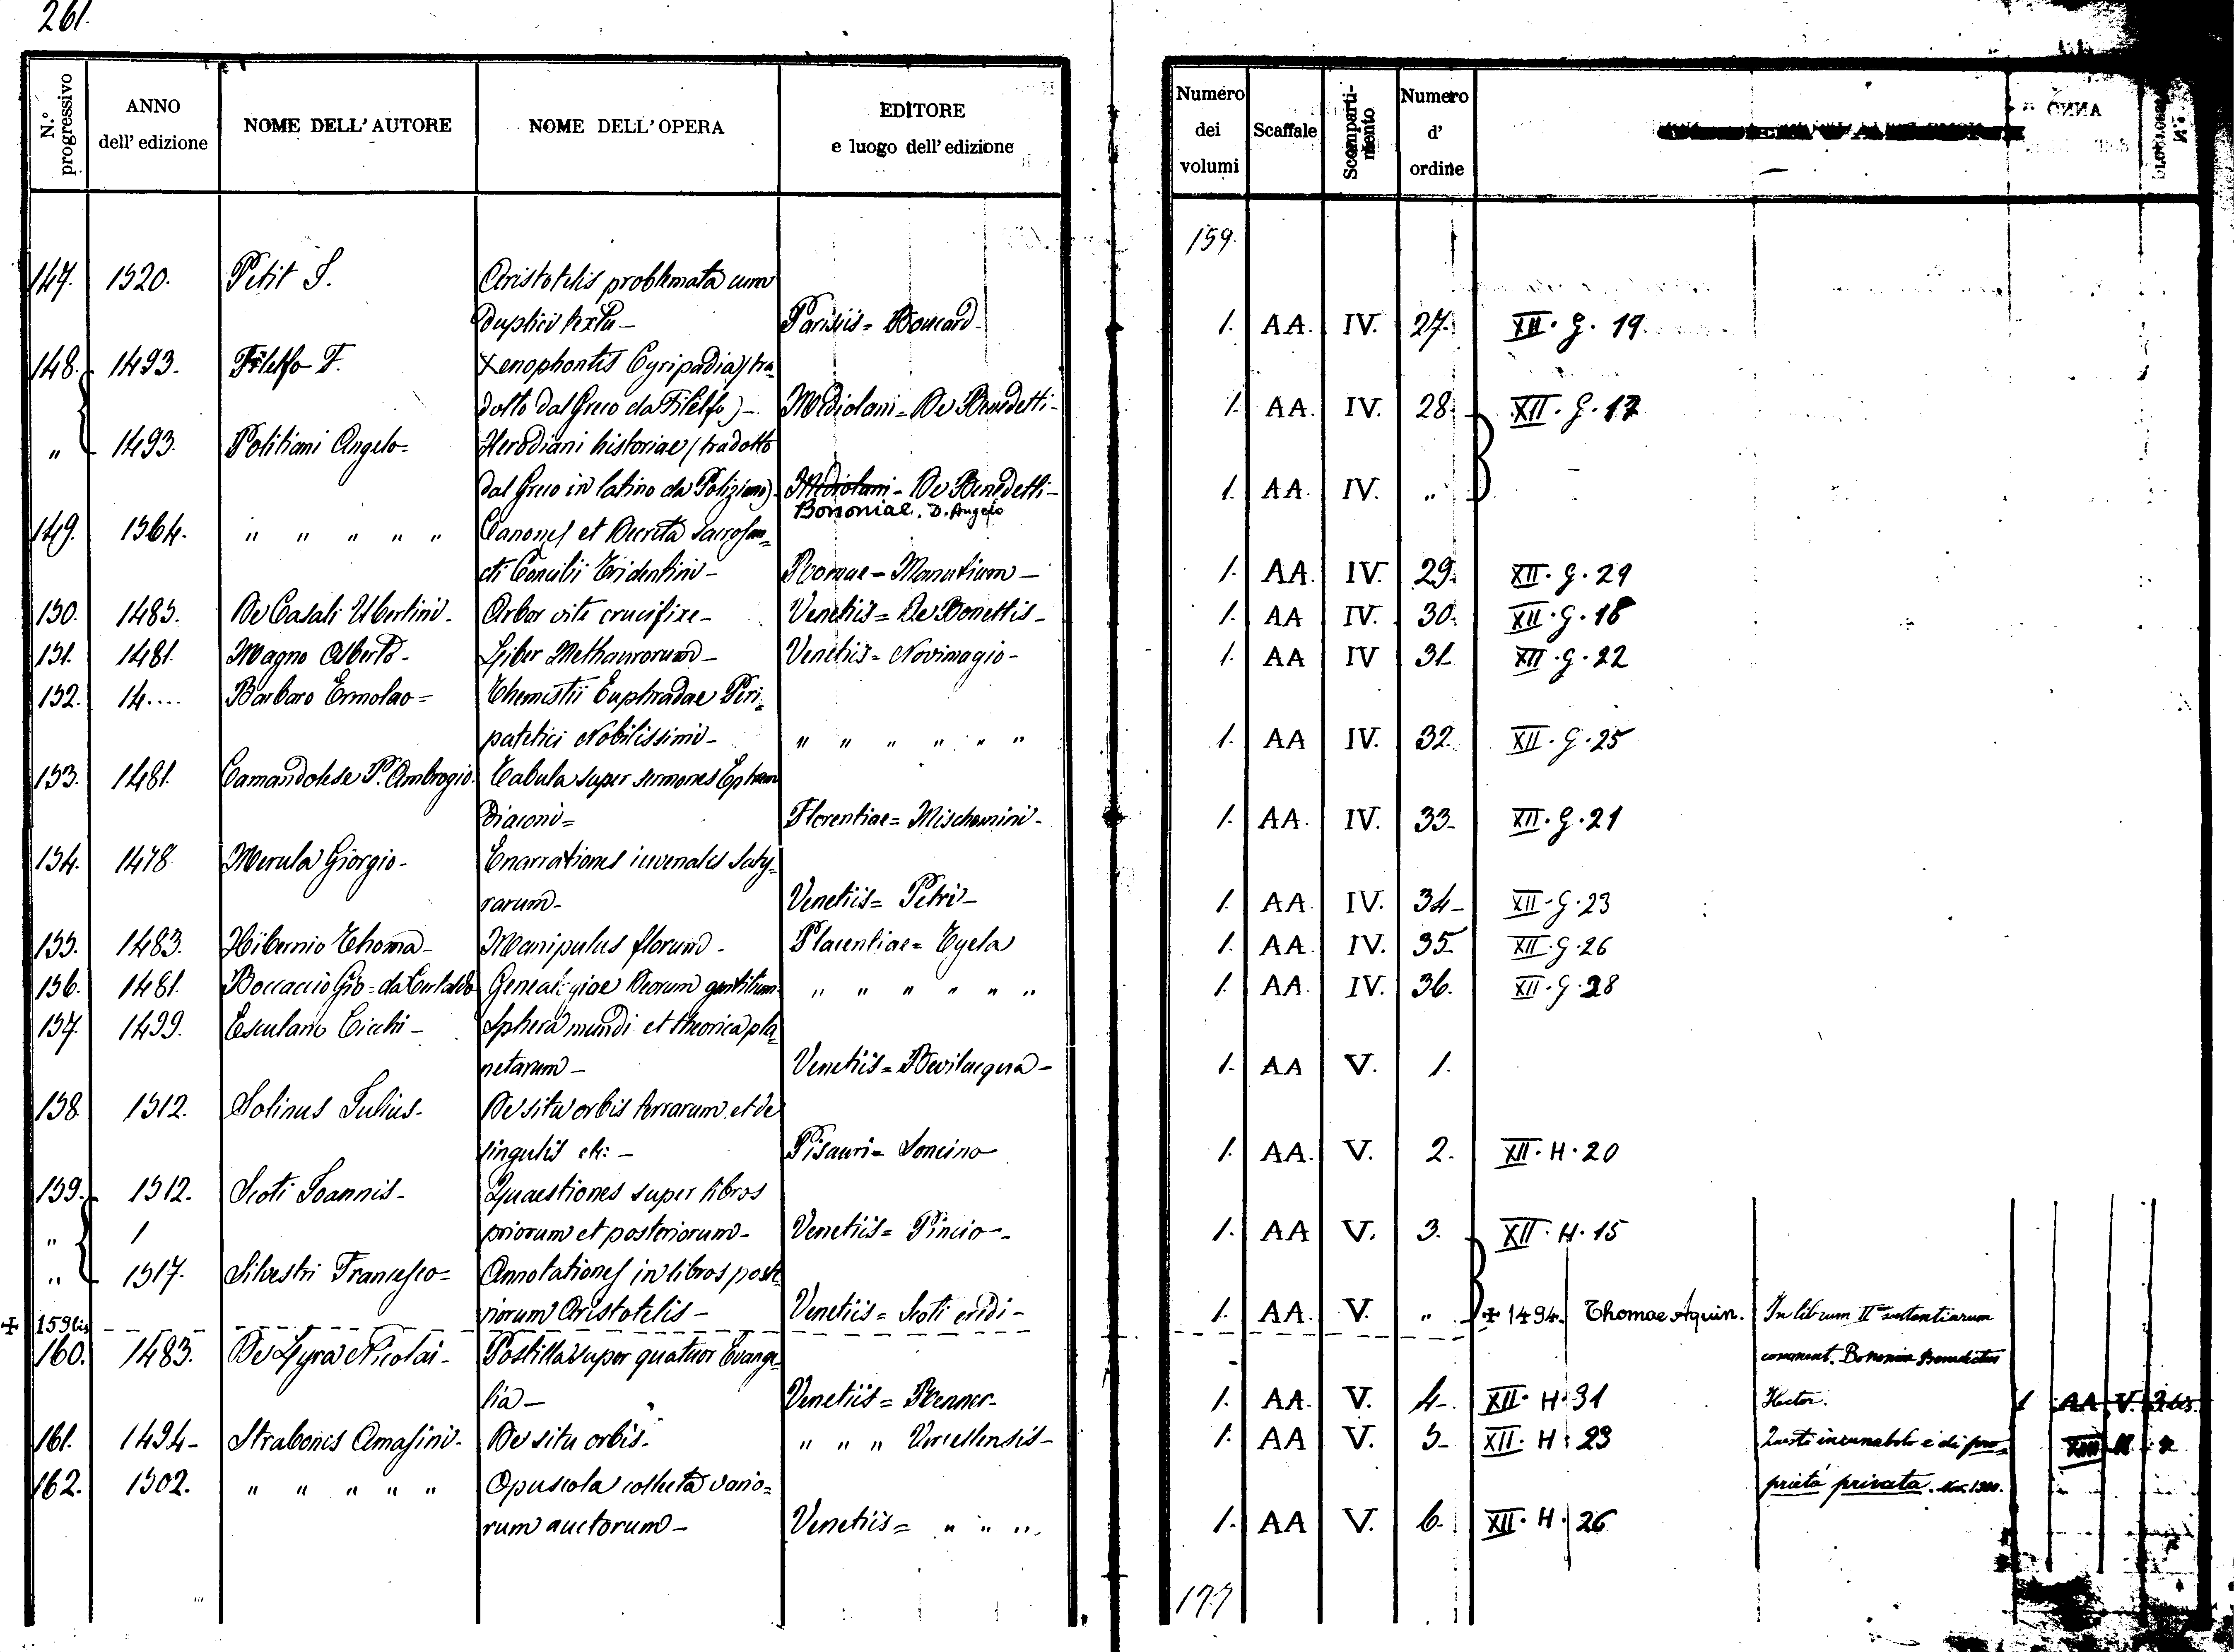 261.
N.º progressivo
ANNO dell' edizione
NOME DELL' AUTORE
NOME DELL' OPERA
EDITORE e luogo dell' edizione
Numero dei volumi
Scaffale
Scomparti-mento
Numero d' ordine
159.
147. 1520. Petit S. Aristotelis problemata cum
duplici textu - Parisiis = Boucard - 1. AA. IV. 27. XII. G. 19.
148. 1493. Filelfo F. Xenophontis Cyripadia (tra=
dotto dal Greco da Filelfo) - Mediolani = De Benedetti - 1. AA. IV. 28. XII. G. 17
" 1493. Politiani Angelo = Herodiani historiae (tradotto
dal Greco in latino da Poliziano) - Mediolani - De Benedetti - 1. AA. IV. "
Bononiae. D. Angelo
149. 1564. " " " " " Canones et Decreta sacrosan=
cti Concilii Tridentini - Romae - Manutium - 1. AA. IV. 29. XII. G. 29
150. 1485. De Casali Ubertini - Arbor vite crucifixe - Venetiis = De Bonettis - 1. AA IV. 30. XII. G. 18
151. 1481. Magno Alberto - Liber Methaurorum - Venetiis = Novimagio - 1. AA IV 31 XII. G. 22
152. 14.... Barbaro Ermolao = Themistii Euphradae Peri=
patetici Nobilissimi - " " " " " " 1. AA IV. 32. XII. G. 25
153. 1481. Camandolese P. Ambrogio. Tabula super sermones Ephrem
Diaconi = Florentiae = Mischomini - 1. AA. IV. 33 - XII. G. 21
154. 1478. Merula Giorgio - Enarrationes iuvenales Saty=
rarum - Venetiis = Petri - 1. AA. IV. 34 - XII. G. 23
155. 1483. Hibernio Thoma - Manipulus florum - Placentiae = Tyela 1. AA. IV. 35 XII. G. 26
156. 1481. Boccaccio Gio = da Certaldo Genealogiae Deorum gentilium. " " " " " " 1. AA. IV. 36. XII. G. 28
157. 1499. Esculano Cicchi - Sphera mundi et theorica pla=
netarum - Venetiis = Bevilacqua - 1. AA V. 1.
158. 1512. Solinus Julius - De situ orbis terrarum et de
singulis etc: - Pisauri = Soncino 1. AA. V. 2. XII. H. 20
159. 1512. Scoti Joannis - Quaestiones super libros
" / priorum et posteriorum - Venetiis = Pincio - 1. AA V. 3. XII. H. 15
" 1517. Silvestri Francesco = Annotationes in libros poste=
riorum Aristotelis - Venetiis = Scoti eredi - 1. AA. V. " + 1494. Thomae Aquin. In librum II sententiarum
+ 159 bis
comment. Bononiae Benedictus
160. 1483. De Lyra Nicolai - Postilla super quatuor Evange=
lia - Venetiis = Renner - 1. AA. V. 4 - XII. H. 31 Hector. 1 AA V. 3 bis.
161. 1494 - Strabonis Amasini - De situ orbis - " " " Vercellensis - 1. AA V. 5 - XII. H. 23 Questo incunabolo è di pro=
162. 1502. " " " " " Opuscola collecta vario= prietà privata.
rum auctorum - Venetiis = " " " 1. AA V. 6 - XII. H. 26
177